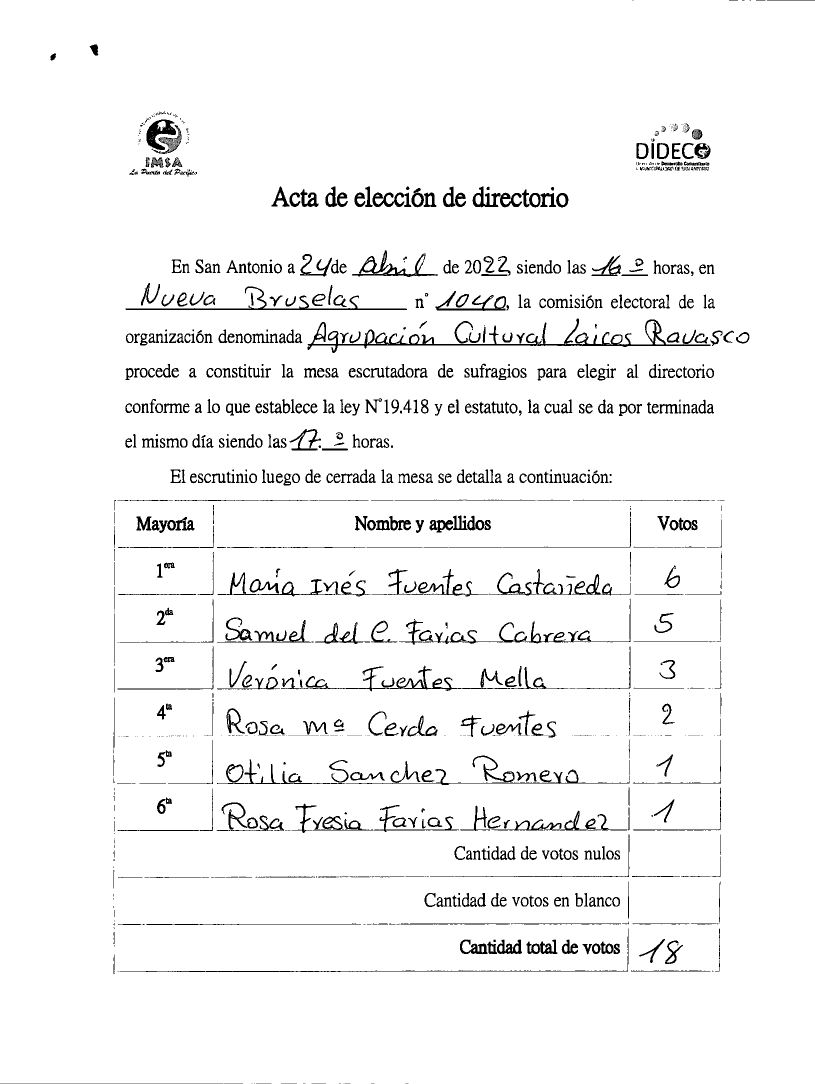 IMSA
La Puerta del Pacífico
DIDECO
Acta de elección de directorio
En San Antonio a 24 de Abril de 2022, siendo las 16 º horas, en
Nueva Bruselas n° 1040, la comisión electoral de la
organización denominada Agrupación Cultural Laicos Ravasco
procede a constituir la mesa escrutadora de sufragios para elegir al directorio
conforme a lo que establece la ley N°19.418 y el estatuto, la cual se da por terminada
el mismo día siendo las 17. º horas.
El escrutinio luego de cerrada la mesa se detalla a continuación:
Mayoría Nombre y apellidos Votos
1era María Inés Fuentes Castañeda 6
2da Samuel del C. Farias Cabrera 5
3era Verónica Fuentes Mella 3
4ta Rosa Mª Cerda Fuentes 2
5ta Otilia Sanchez Romero 1
6ta Rosa Fresia Farias Hernandez 1
Cantidad de votos nulos
Cantidad de votos en blanco
Cantidad total de votos 18